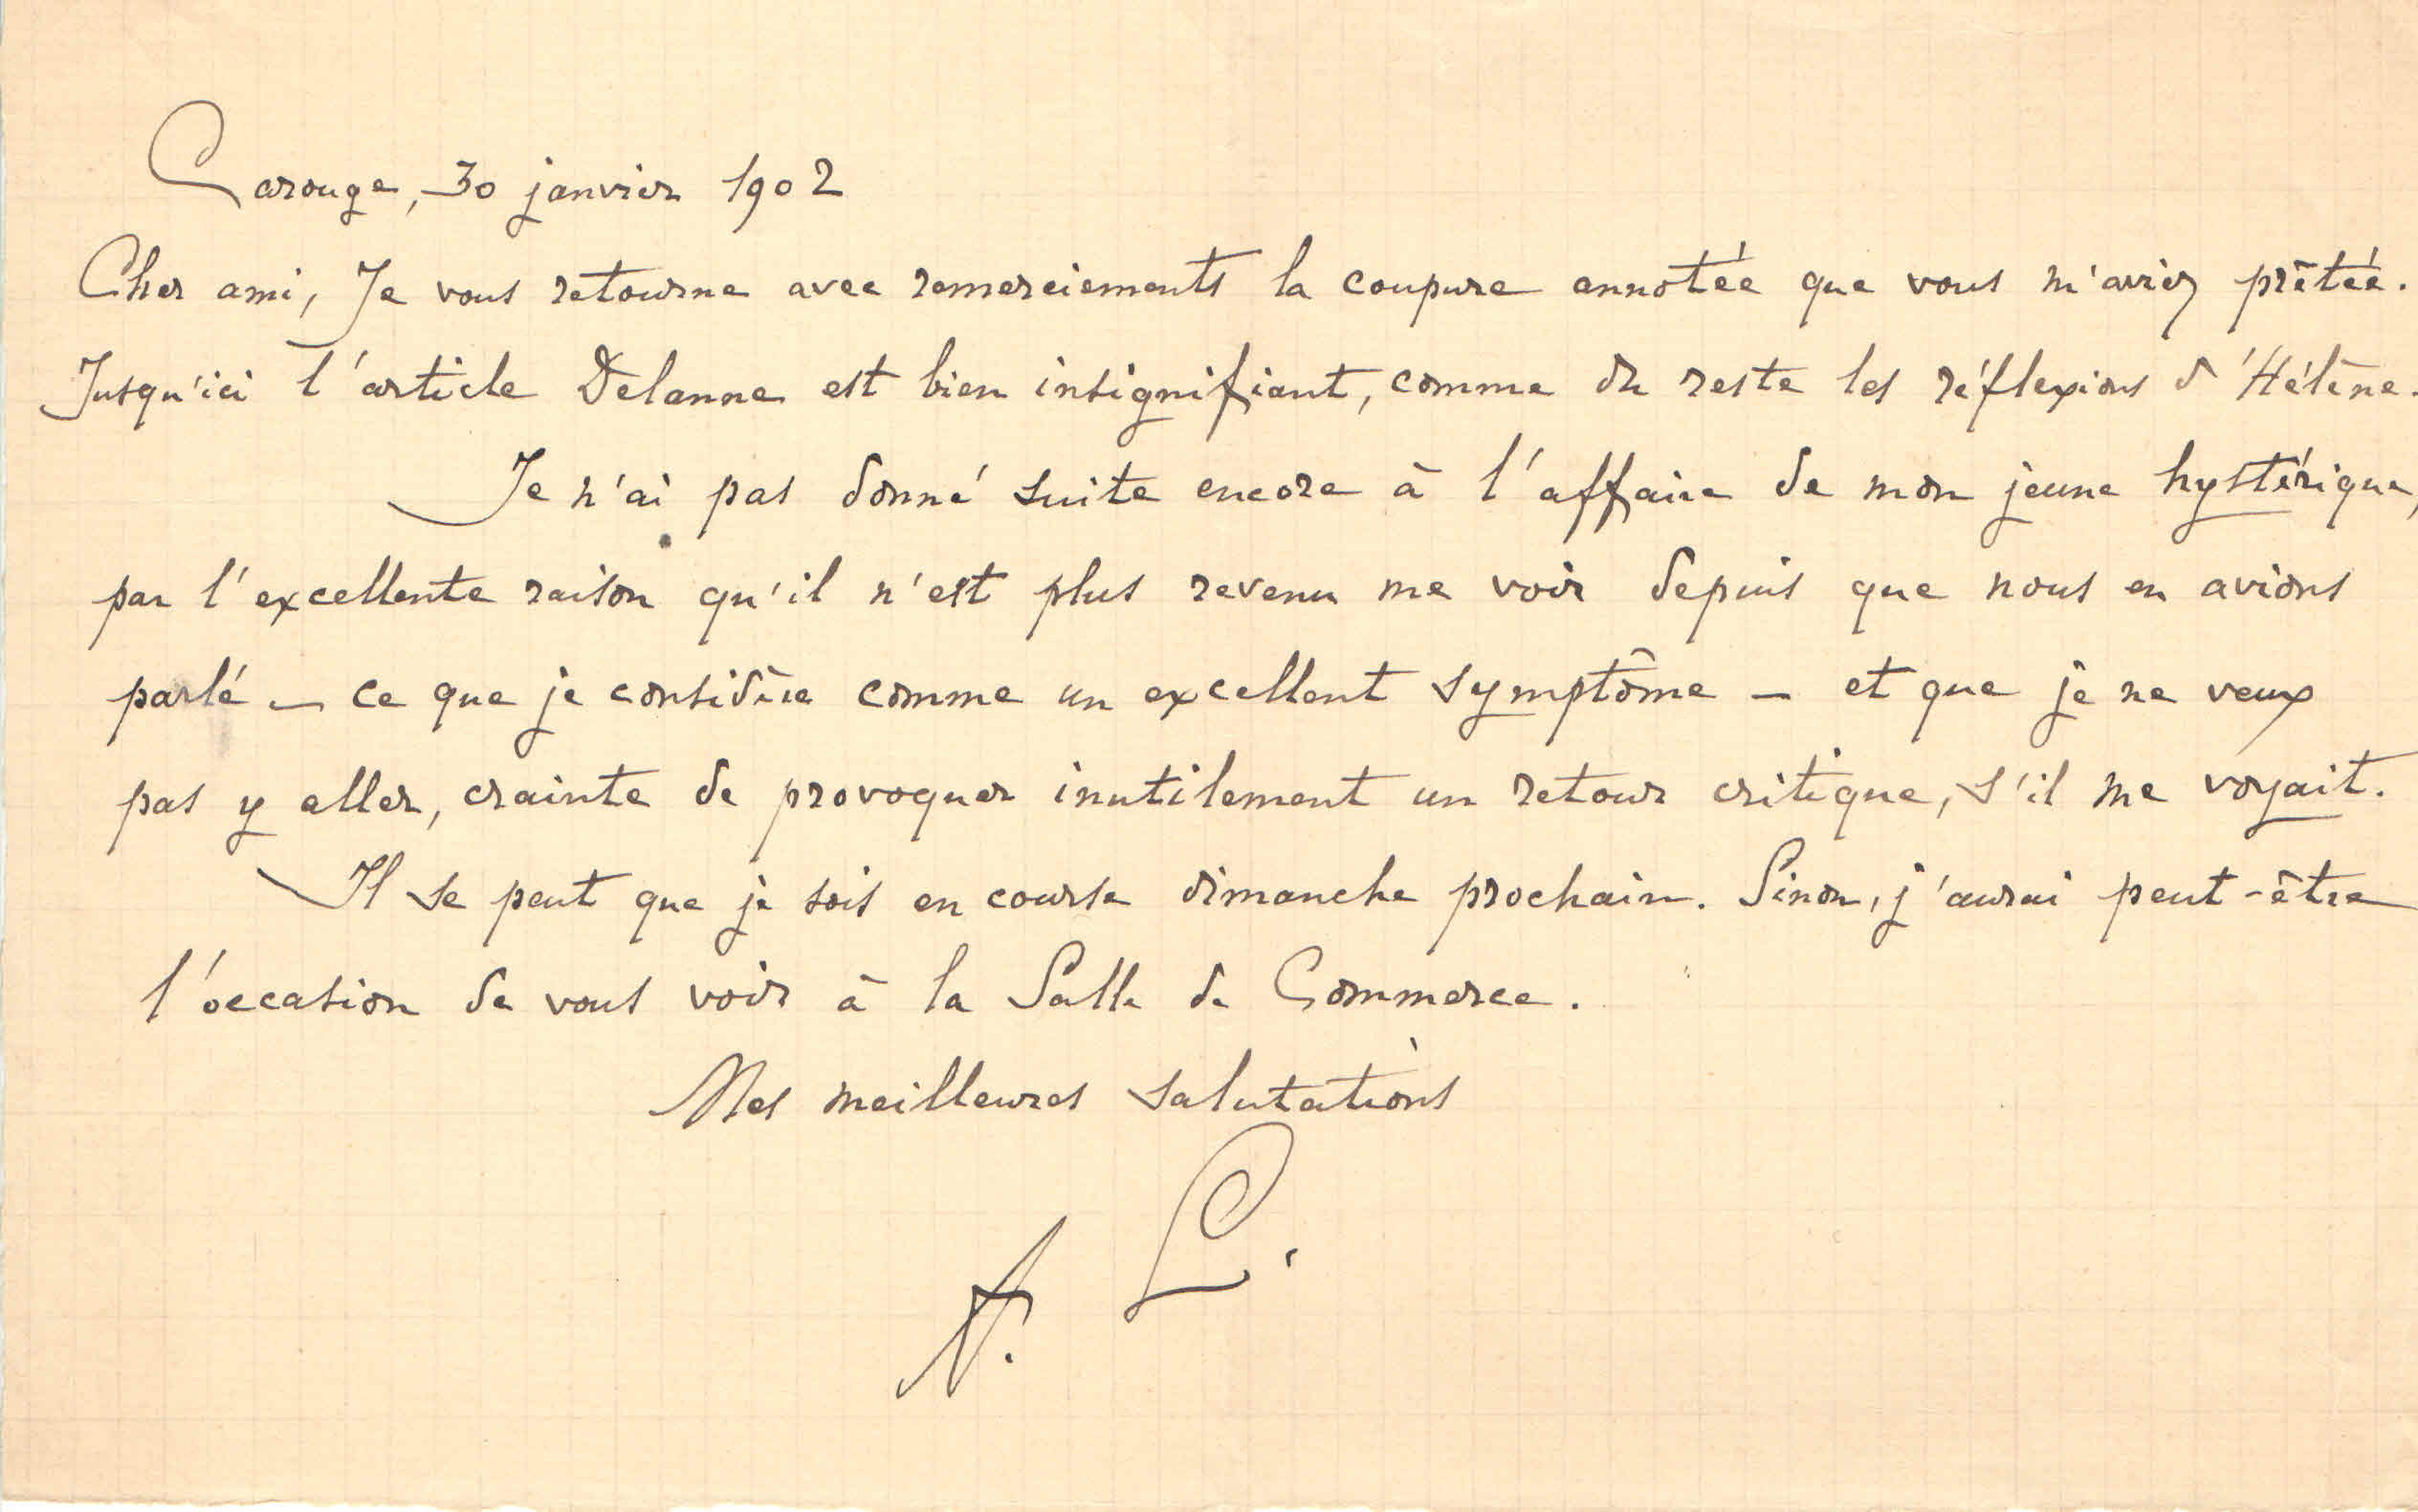 Carouge, 30 janvier 1902
Cher ami, Je vous retourne avec remerciements la coupure annotée que vous m'aviez prêtée.
Jusqu'ici l'article Delanne est bien insignifiant, comme du reste les réflexions d'Hélène.
Je n'ai pas donné suite encore à l'affaire de mon jeune hystérique,
par l'excellente raison qu'il n'est plus revenu me voir depuis que nous en avions
parlé — ce que je considère comme un excellent symptôme — et que je ne veux
pas y aller, crainte de provoquer inutilement un retour critique, s'il me voyait.
Il se peut que je sois en course dimanche prochain. Sinon, j'aurai peut-être
l'occasion de vous voir à la Salle de Commerce.
Mes meilleures salutations
A. L.